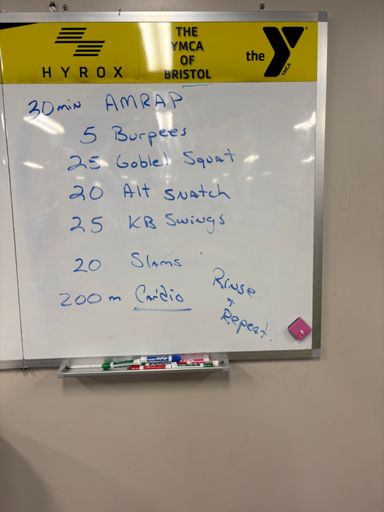 HYROX
THE
YMCA
OF
BRISTOL
the Y
YMCA
30 min AMRAP
5 Burpees
25 Goblet Squat
20 Alt Snatch
25 KB Swings
20 Slams
200 m Cardio
Rinse
+
Repeat.